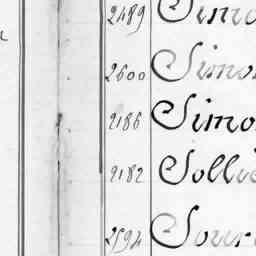 2489 Simo
2600 Simo
2186 Simo
2182 Solli
2594 Sour